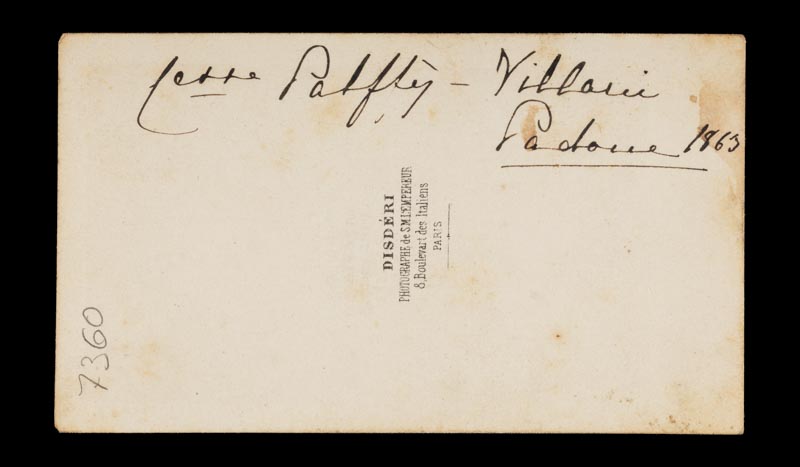 Cesse Palffy - Villani
Padoue 1863
DISDÉRI
PHOTOGRAPHE de S.M.L'EMPEREUR
8, Boulevart des Italiens
PARIS
7360